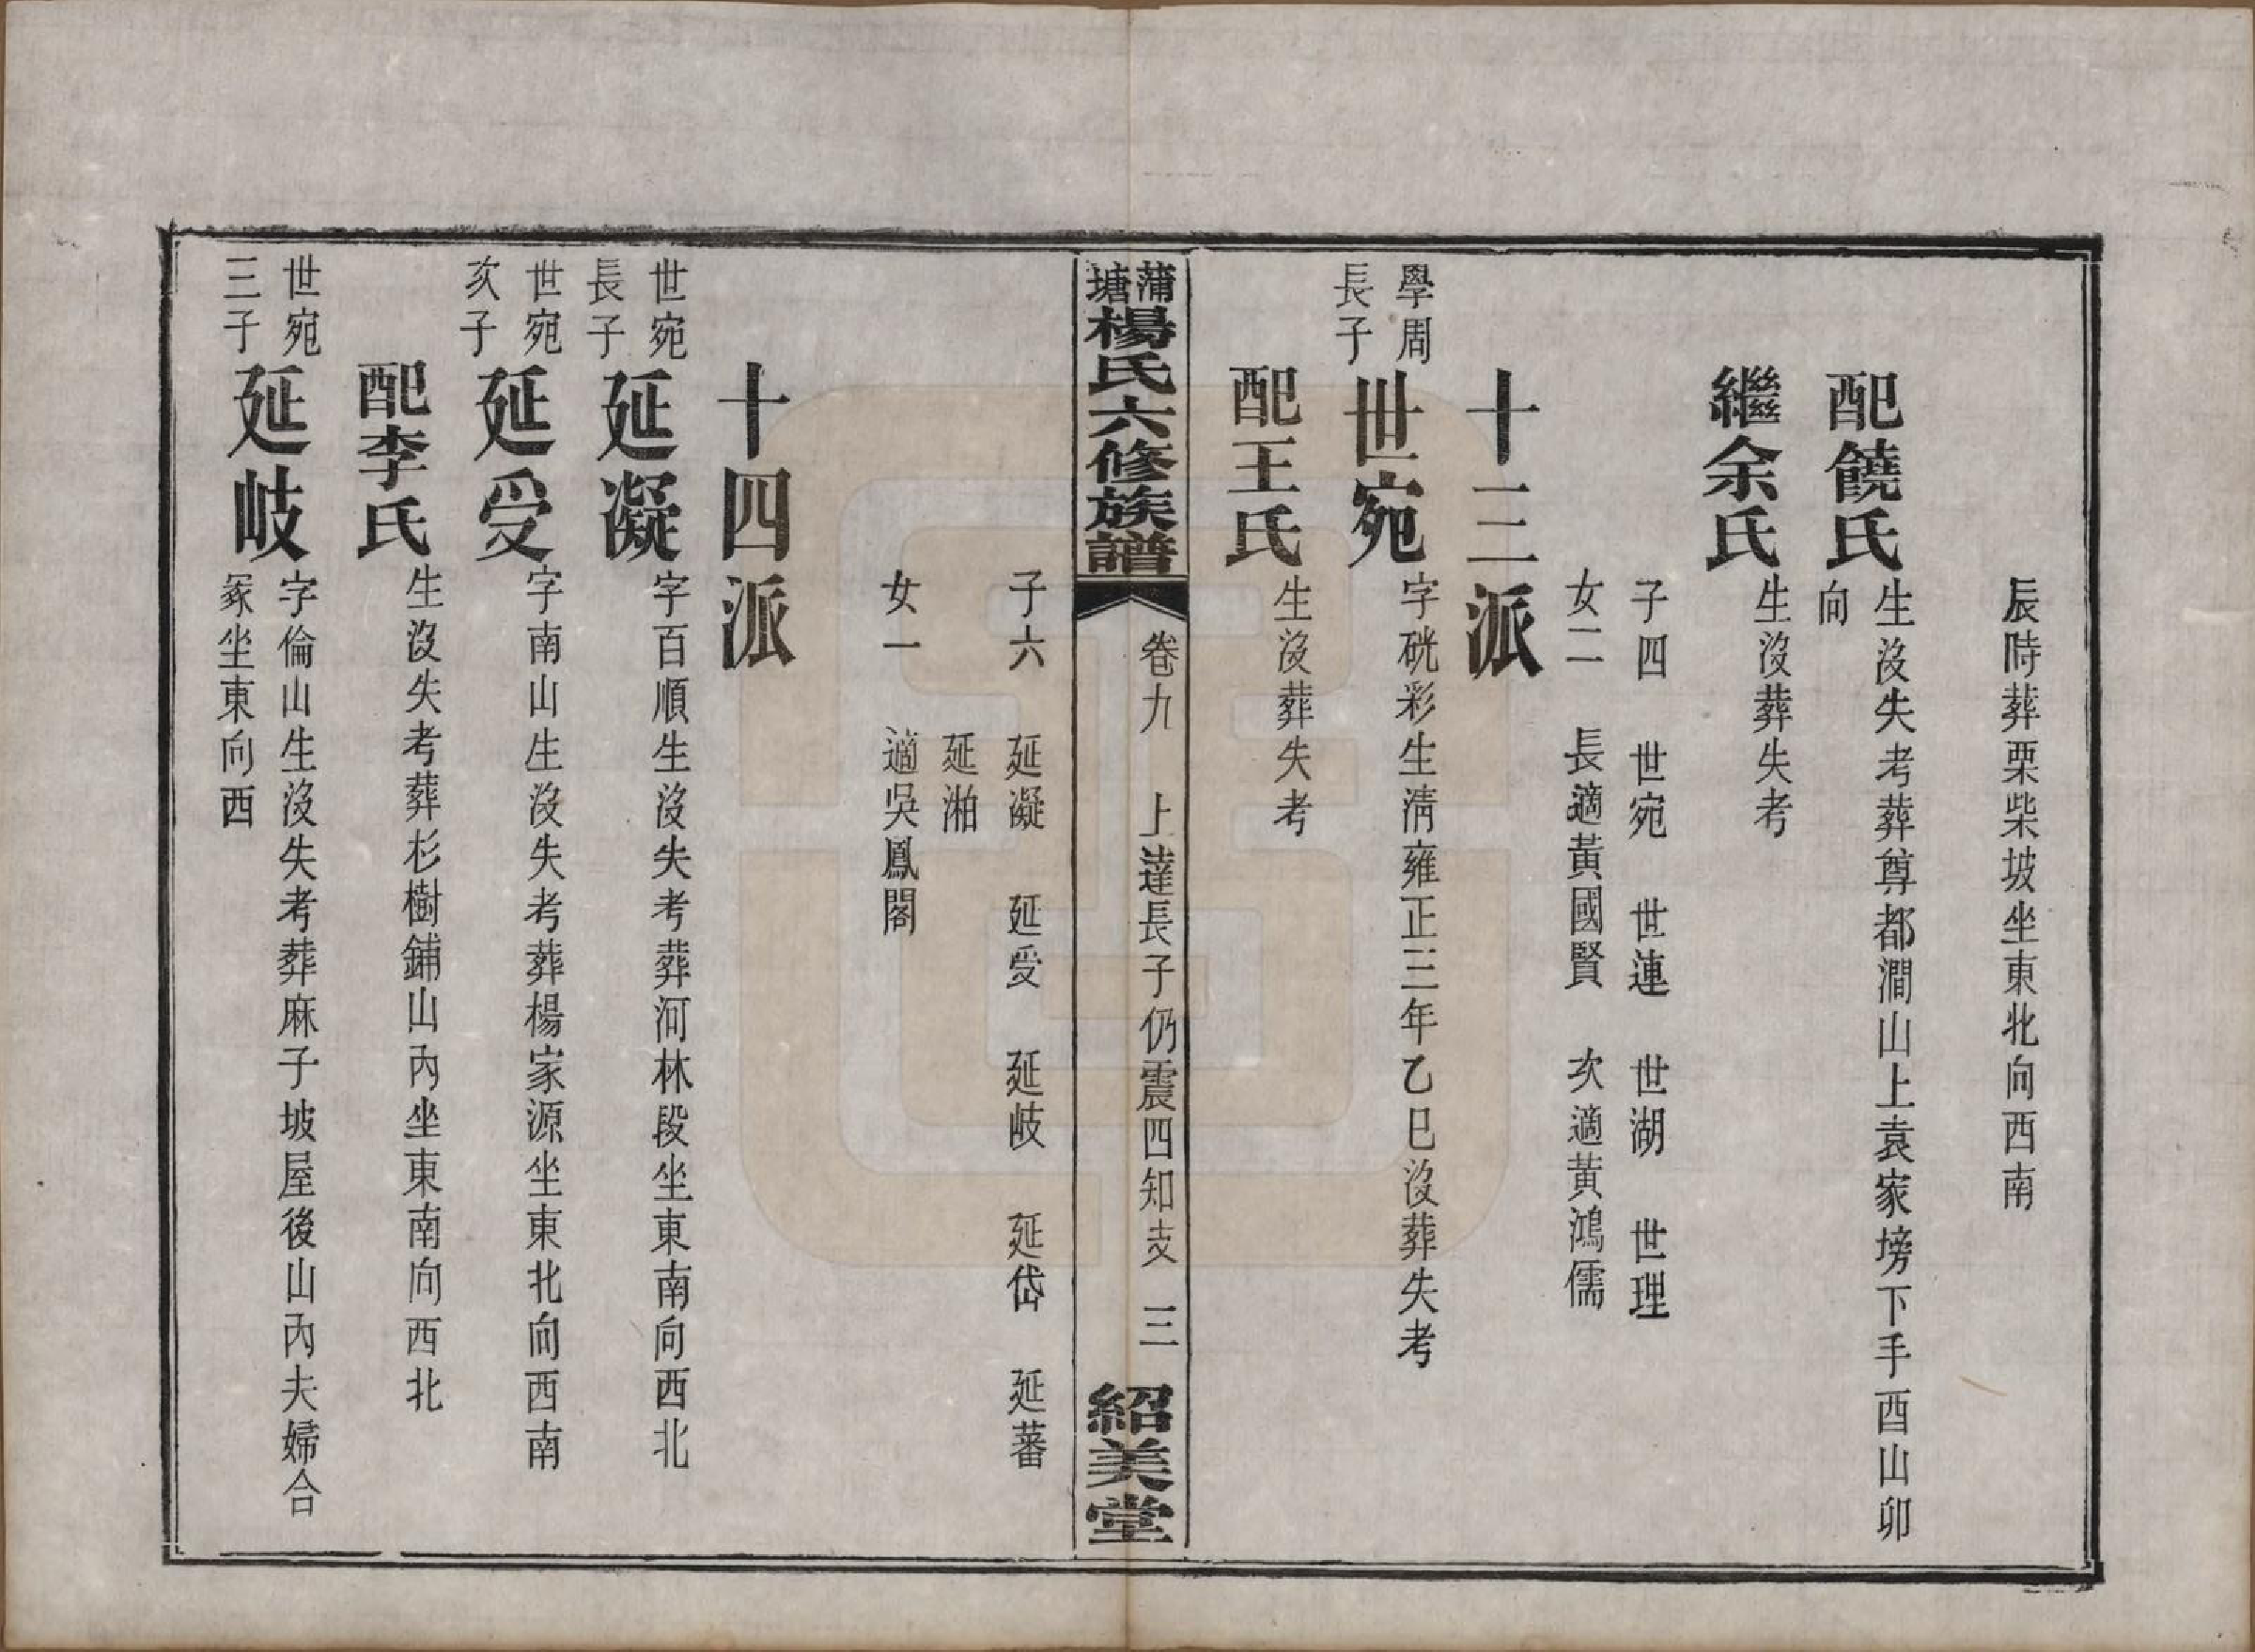 辰時葬栗柴坡坐東北向西南
配饒氏
生沒失考葬尊都澗山上袁家塝下手酉山卯
向
繼余氏
生沒葬失考
子四 世宛 世連 世湖 世理
女二 長適黃國賢 次適黃鴻儒
十三派
學周
長子
世宛
字硄彩生清雍正三年乙巳沒葬失考
配王氏
生沒葬失考
蒲塘楊氏六修族譜
卷九 上達長子仍震四知支 三
紹美堂
子六 延凝 延受 延岐 延岱 延蕃
延湘
女一 適吳鳳閣
十四派
世宛
長子
延凝
字百順生沒失考葬河林段坐東南向西北
世宛
次子
延受
字南山生沒失考葬楊家源坐東北向西南
配李氏
生沒失考葬杉樹鋪山內坐東南向西北
世宛
三子
延岐
字倫山生沒失考葬麻子坡屋後山內夫婦合
冢坐東向西